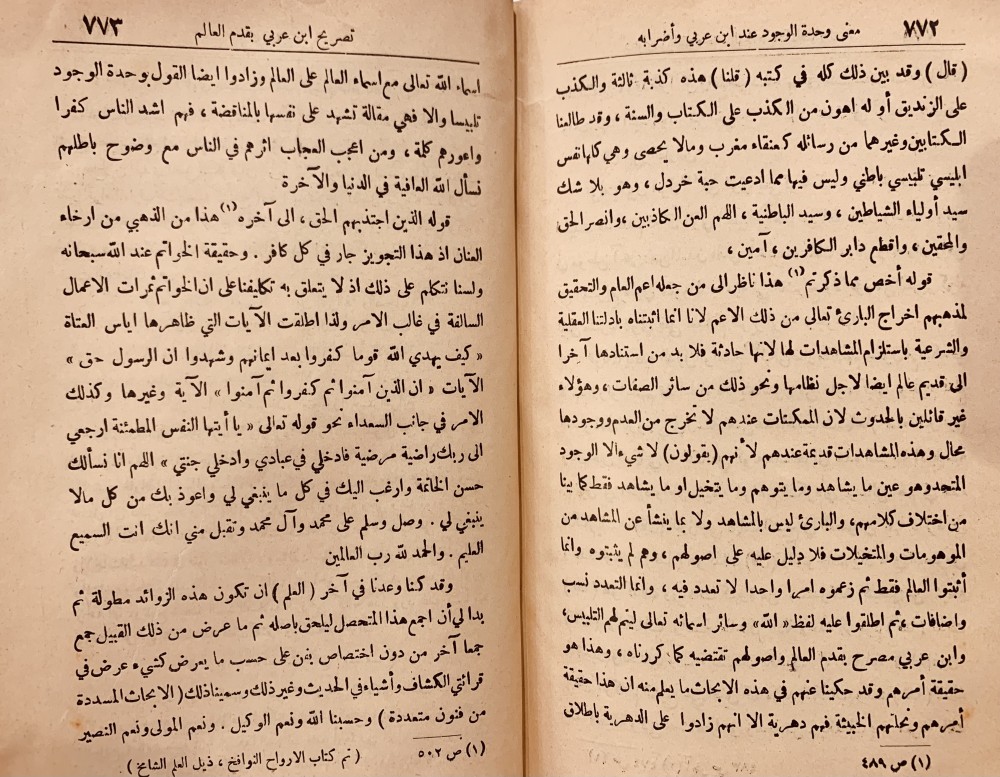 ٧٧٢ معنى وحدة الوجود عند ابن عربي وأضرابه
( قال ) وقد بين ذلك كله في كتبه ( قلنا ) هذه كذبة ثالثة والكذب
على الزنديق أو له اهون من الكذب على الكتاب والسنة ، وقد طالعنا
الكتابين وغيرهما من رسائله كعنقاء مغرب ومالا يحصى وهي كلها نفس
ابليسي تلبيسي باطني وليس فيها مما ادعيت حبة خردل ، وهو بلا شك
سيد أولياء الشياطين ، وسيد الباطنية ، اللهم العن الكاذبين ، وانصر الحق
والمحقين ، واقطع دابر الكافرين ، آمين ،
قوله أخص مما ذكرتم (١) هذا ناظر الى من جعله اعم العام والتحقيق
لمذهبهم اخراج البارئ تعالى من ذلك الاعم لانا انما اثبتناه بادلتنا العقلية
والشرعية باستلزام المشاهدات لها لانها حادثة فلا بد من استنادها آخرا
الى قديم عالم ايضا لاجل نظامها ونحو ذلك من سائر الصفات ، وهؤلاء
غير قائلين بالحدوث لان الممكنات عندهم لا تخرج من العدم ووجودها
محال وهذه المشاهدات قديمة عندهم لأنهم (يقولون) لا شيء الا الوجود
المتحد وهو عين ما يشاهد وما يتوهم وما يتخيل او ما يشاهد فقط كما بينا
من اختلاف كلامهم ، والبارئ ليس بالمشاهد ولا بما ينشأ عن المشاهد من
الموهومات والمتخيلات فلا دليل عليه على اصولهم ، وهم لم يثبتوه وانما
أثبتوا العالم فقط ثم زعموه امرا واحدا لا تعدد فيه ، وانما التعدد نسب
واضافات ، ثم اطلقوا عليه لفظ « الله » وسائر اسمائه تعالى ليتم لهم التلبيس ،
وابن عربي مصرح بقدم العالم واصولهم تقتضيه كما كررناه ، وهذا هو
حقيقة أمرهم وقد حكينا عنهم في هذه الابحاث ما يعلم منه ان هذا حقيقة
أمرهم ونحلتهم الخبيثة فهم دهرية الا انهم زادوا على الدهرية باطلاق
(١) ص ٤٨٩
تصريح ابن عربي بقدم العالم ٧٧٣
اسماء الله تعالى مع اسماء العالم على العالم وزادوا ايضا القول بوحدة الوجود
تلبيسا والا فهي مقالة تشهد على نفسها بالمناقضة ، فهم اشد الناس كفرا
واعورهم كلمة ، ومن اعجب العجاب اثرهم في الناس مع وضوح باطلهم
نسأل الله العافية في الدنيا والآخرة
قوله الذين اجتذبهم الحق ، الى آخره (١) هذا من الذهبي من ارخاء
العنان اذ هذا التجويز جار في كل كافر . وحقيقة الخواتم عند الله سبحانه
ولسنا نتكلم على ذلك اذ لا يتعلق به تكليفنا على ان الخواتم ثمرات الاعمال
السالفة في غالب الامر ولذا اطلقت الآيات التي ظاهرها اياس العتاة
« كيف يهدي الله قوما كفروا بعد ايمانهم وشهدوا ان الرسول حق »
الآيات « ان الذين آمنوا ثم كفروا ثم آمنوا » الآية وغيرها وكذلك
الامر في جانب السعداء نحو قوله تعالى « يا أيتها النفس المطمئنة ارجعي
الى ربك راضية مرضية فادخلي في عبادي وادخلي جنتي » اللهم انا نسألك
حسن الخاتمة وارغب اليك في كل ما ينبغي لي واعوذ بك من كل مالا
ينبغي لي . وصل وسلم على محمد وآل محمد وتقبل مني انك انت السميع
العليم . والحمد لله رب العالمين
وقد كنا وعدنا في آخر ( العلم ) ان تكون هذه الزوائد مطولة ثم
بدا لي أن اجمع هذا المتحصل ليلحق باصله ثم ما عرض من ذلك القبيل جمع
جمعا آخر من دون اختصاص بفن على حسب ما يعرض كشيء عرض في
قرائتي الكشاف وأشياء في الحديث وغير ذلك وسميناذلك ( الابحاث المسددة
من فنون متعددة ) وحسبنا الله ونعم الوكيل . ونعم المولى ونعم النصير
(١) ص ٥٠٢ ( تم كتاب الارواح النوافخ ، ذيل العلم الشامخ )